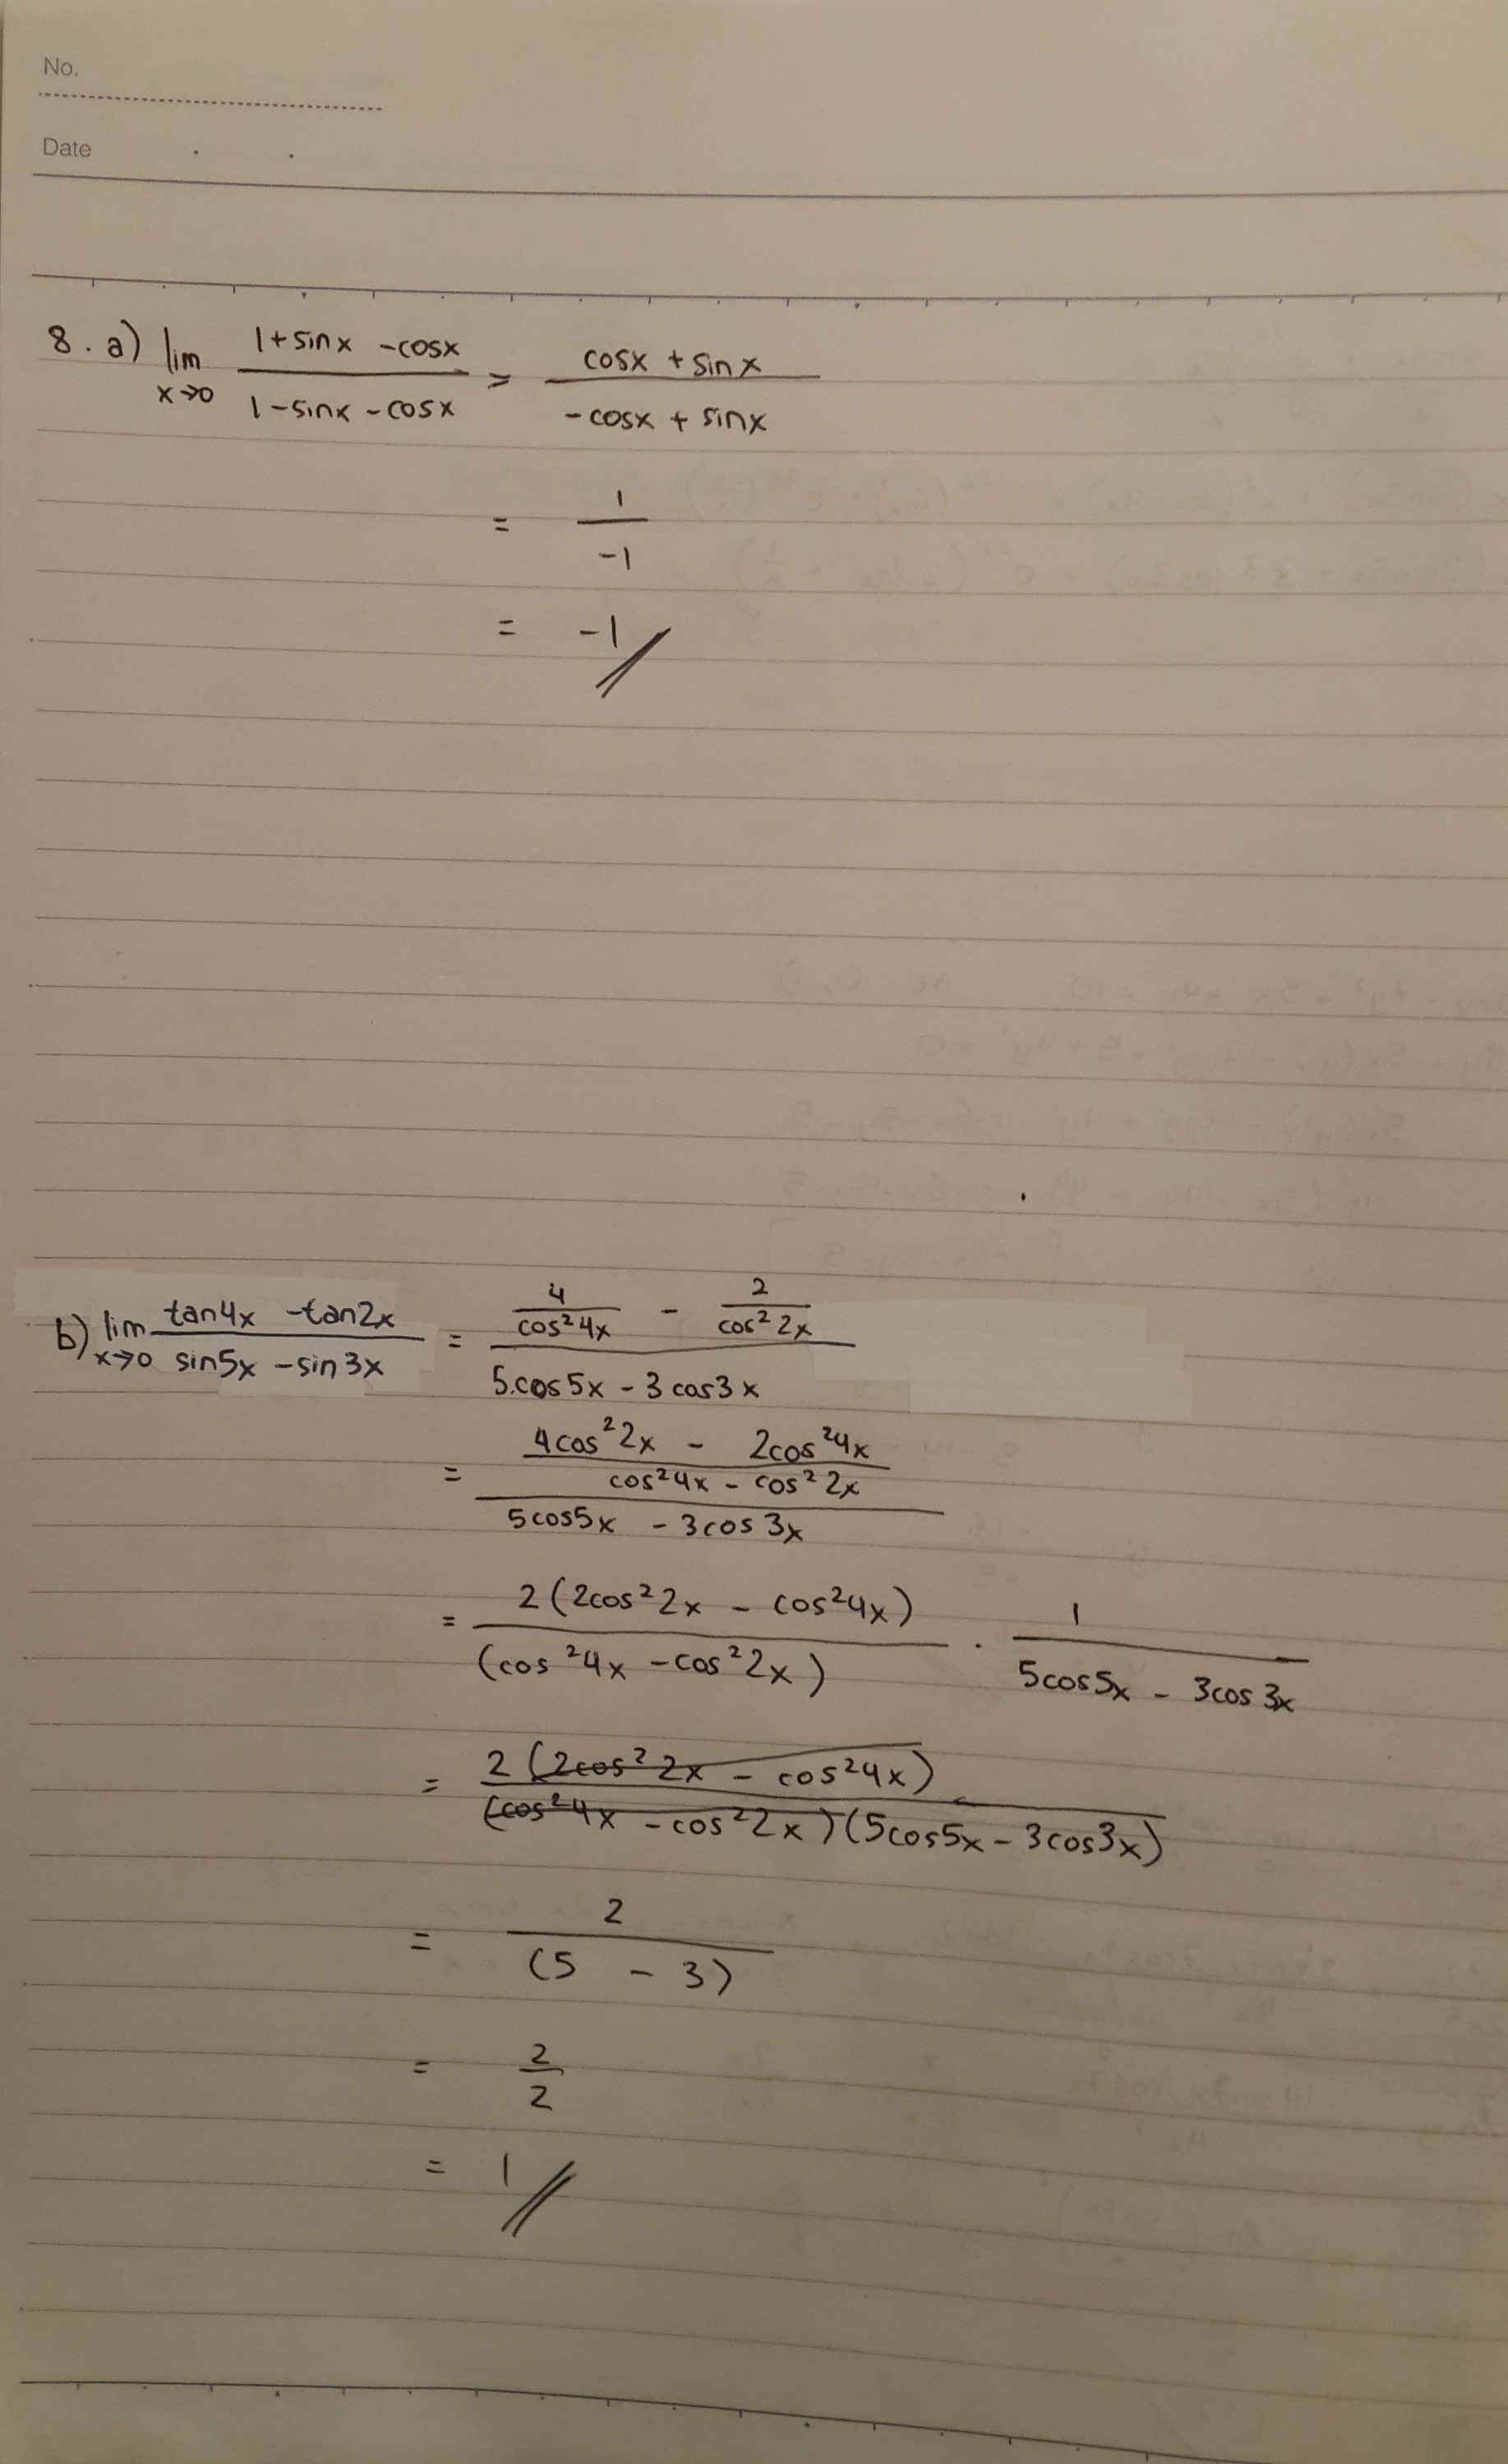 No.
Date
8. a) lim x→0 (1+sinx -cosx)/(1-sinx -cosx) = (cosx + sinx)/(-cosx + sinx)
= 1/-1
= -1
b) lim x→0 (tan4x -tan2x)/(sin5x -sin3x) = (4/cos²4x - 2/cos²2x)/(5.cos5x - 3cos3x)
= ((4cos²2x - 2cos²4x)/(cos²4x - cos²2x))/(5cos5x - 3cos3x)
= 2(2cos²2x - cos²4x)/(cos²4x -cos²2x) . 1/(5cos5x - 3cos3x)
= 2(2cos²2x - cos²4x)/(cos²4x -cos²2x)(5cos5x - 3cos3x)
= 2/(5 - 3)
= 2/2
= 1